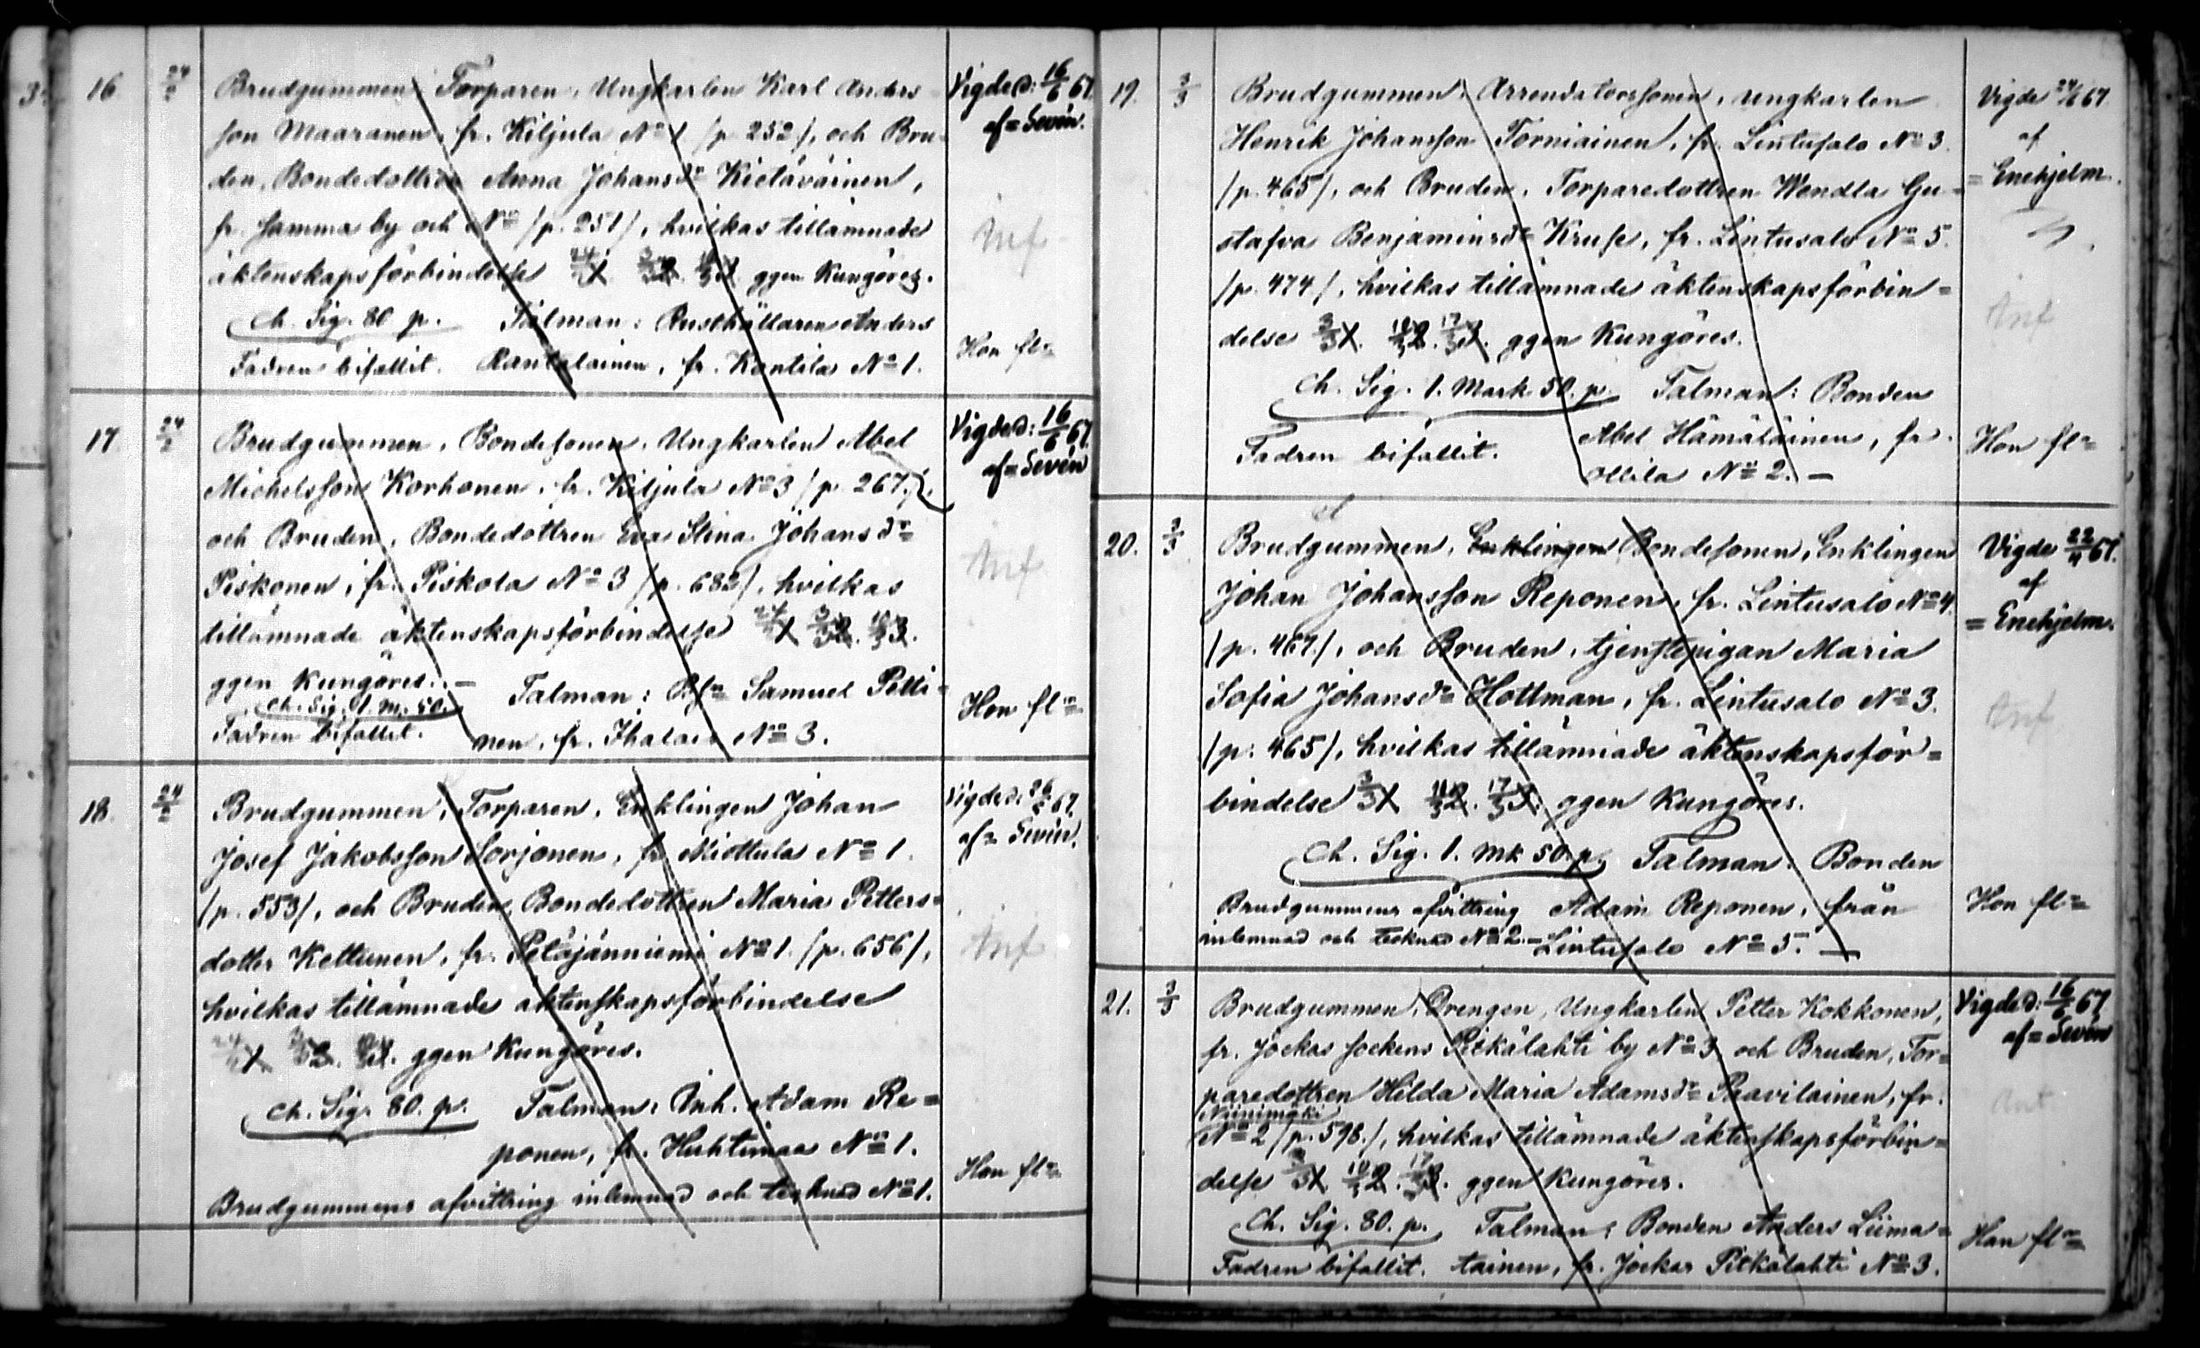 16. 24/2 Brudgummen, Torparen, Ungkarlen Karl Anders
son Maaranen, fr. Kiljula No 1 /p. 252/, och Bru-
den, Bondedottren Anna Johansdr Kietäväinen,
fr. samma by och No /p. 251/, hvilkas tillämnade
äktenskapsförbindelse 24/2 1 3/3 2. 10/3 3 ggen Kungöres.
Ch. Sig. 80 p. Talman: Rusthållaren Anders
Fadren bifallit. Rantalainen, fr. Kantila No 1.
Vigde d: 16/6 67.
af = Sevén.
Inf
Hon fl=
17. 24/2 Brudgummen, Bondesonen, Ungkarlen Abel
Michelsson Korhonen, fr. Kiljula No 3 /p. 267./,
och Bruden, Bondedottren Eva Stina Johansdr
Piskonen, fr. Piskola No 3 /p. 682/, hvilkas
tillämnade äktenskapsförbindelse 24/2 1 3/3 2. 10/3 3.
ggen Kungöres. –
Ch. Sig. 1. m. 50. Talman: Samuel Petti-
Fadren bifallit. nen, fr. No 3.
Vigde d: 16/6 67.
af = Sevén
Inf
Hon fl=
18. 24/2 Brudgummen, Torparen, Enklingen Johan
Josef Jakobsson Sorjonen, fr. Miettula No 1.
/p. 553/, och Bruden, Bondedottren Maria Petters-
dotter Kettunen, fr. Petäjänniemi No 1. /p. 656/,
hvilkas tillämnade äktenskapsförbindelse
24/2 1 3/3 2. 3. ggen Kungöres.
Ch. Sig. 80. p. Talman: Inh. Adam Re=
ponen, fr. Huhtimaa No 1.
Brudgummens afvittring inlemnad och tecknad No 1.
Vigde d: 67.
af = Sevén.
Inf
Hon fl=
19. 3/3 Brudgummen, Arrendatorssonen, ungkarlen
Henrik Johansson Torniainen, fr. Lintusalo No 3.
/p. 465/, och Bruden, Torparedottren Wendla Gu-
stafva Benjaminsdr Kruse, fr. Lintusalo No 5.
/p. 474/, hvilkas tillämnade äktenskapsförbin=
delse 3/3 1. 10/3 2. 17/3 3. ggen Kungöres.
Ch. Sig. 1. Mark 50. p. Talman: Bonden
Abel Hämäläinen, fr.
Fadren bifallit. Ollila No 2. –
Vigde 24/6 67.
af
= Enehjelm.
Inf
Hon fl=
20. 3/3 Brudgummen, Enklingen Bondesonen, Enklingen
Johan Johansson Reponen, fr. Lintusalo No 4.
/p. 467./, och Bruden, tjenstepigan Maria
Sofia Johansdr Hottman, fr. Lintusalo No 3.
/p. 465/, hvilkas tillämnade äktenskapsför=
bindelse 3/3 1 10/3 2. 17/3 3. ggen Kungöres.
Ch. Sig. 1. Mk 50. p. Talman: Bonden
Brudgummens afvittring Adam Reponen, från
inlemnad och tecknad No 2. – Lintusalo No 5. –
Vigde 22/4 67.
af
= Enehjelm.
Inf
Hon fl=
21. 3/3 Brudgummen, Drengen, Ungkarlen Petter Kokkonen,
fr. Jockas sockens Pitkälahti by No 3, och Bruden, Tor=
paredottren Hilda Maria Adamsdr Paavilainen, fr.
Niinimäki
No 2 /p. 598./, hvilkas tillämnade äktenskapsförbin=
delse 3/3 1. 10/3 2. 17/3 3. ggen Kungöres.
Ch. Sig. 80. p. Talman: Bonden Anders Liima=
Fadren bifallit. tainen, fr. Jockas Pitkälahti No 3.
Vigde d: 16/6 67.
af = Sevén
Ant
Han fl=